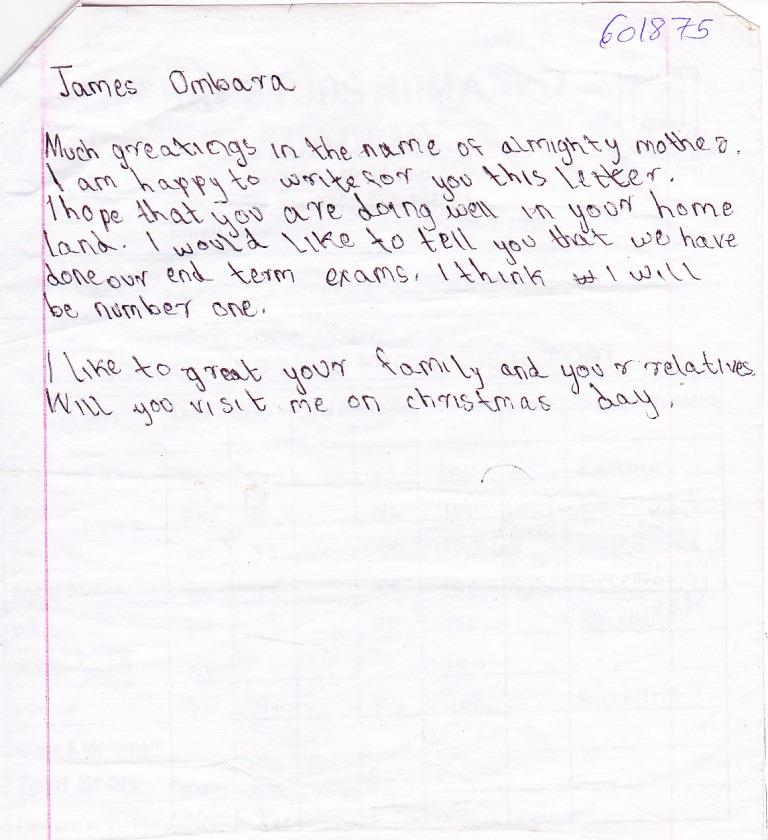 601875
James Ombara
Much greatings in the name of almighty mother.
I am happy to write for you this letter.
I hope that you are doing well in your home
land. I would like to tell you that we have
done our end term exams. I think I will
be number one.
I like to great your family and your relatives.
Will you visit me on christmas day.